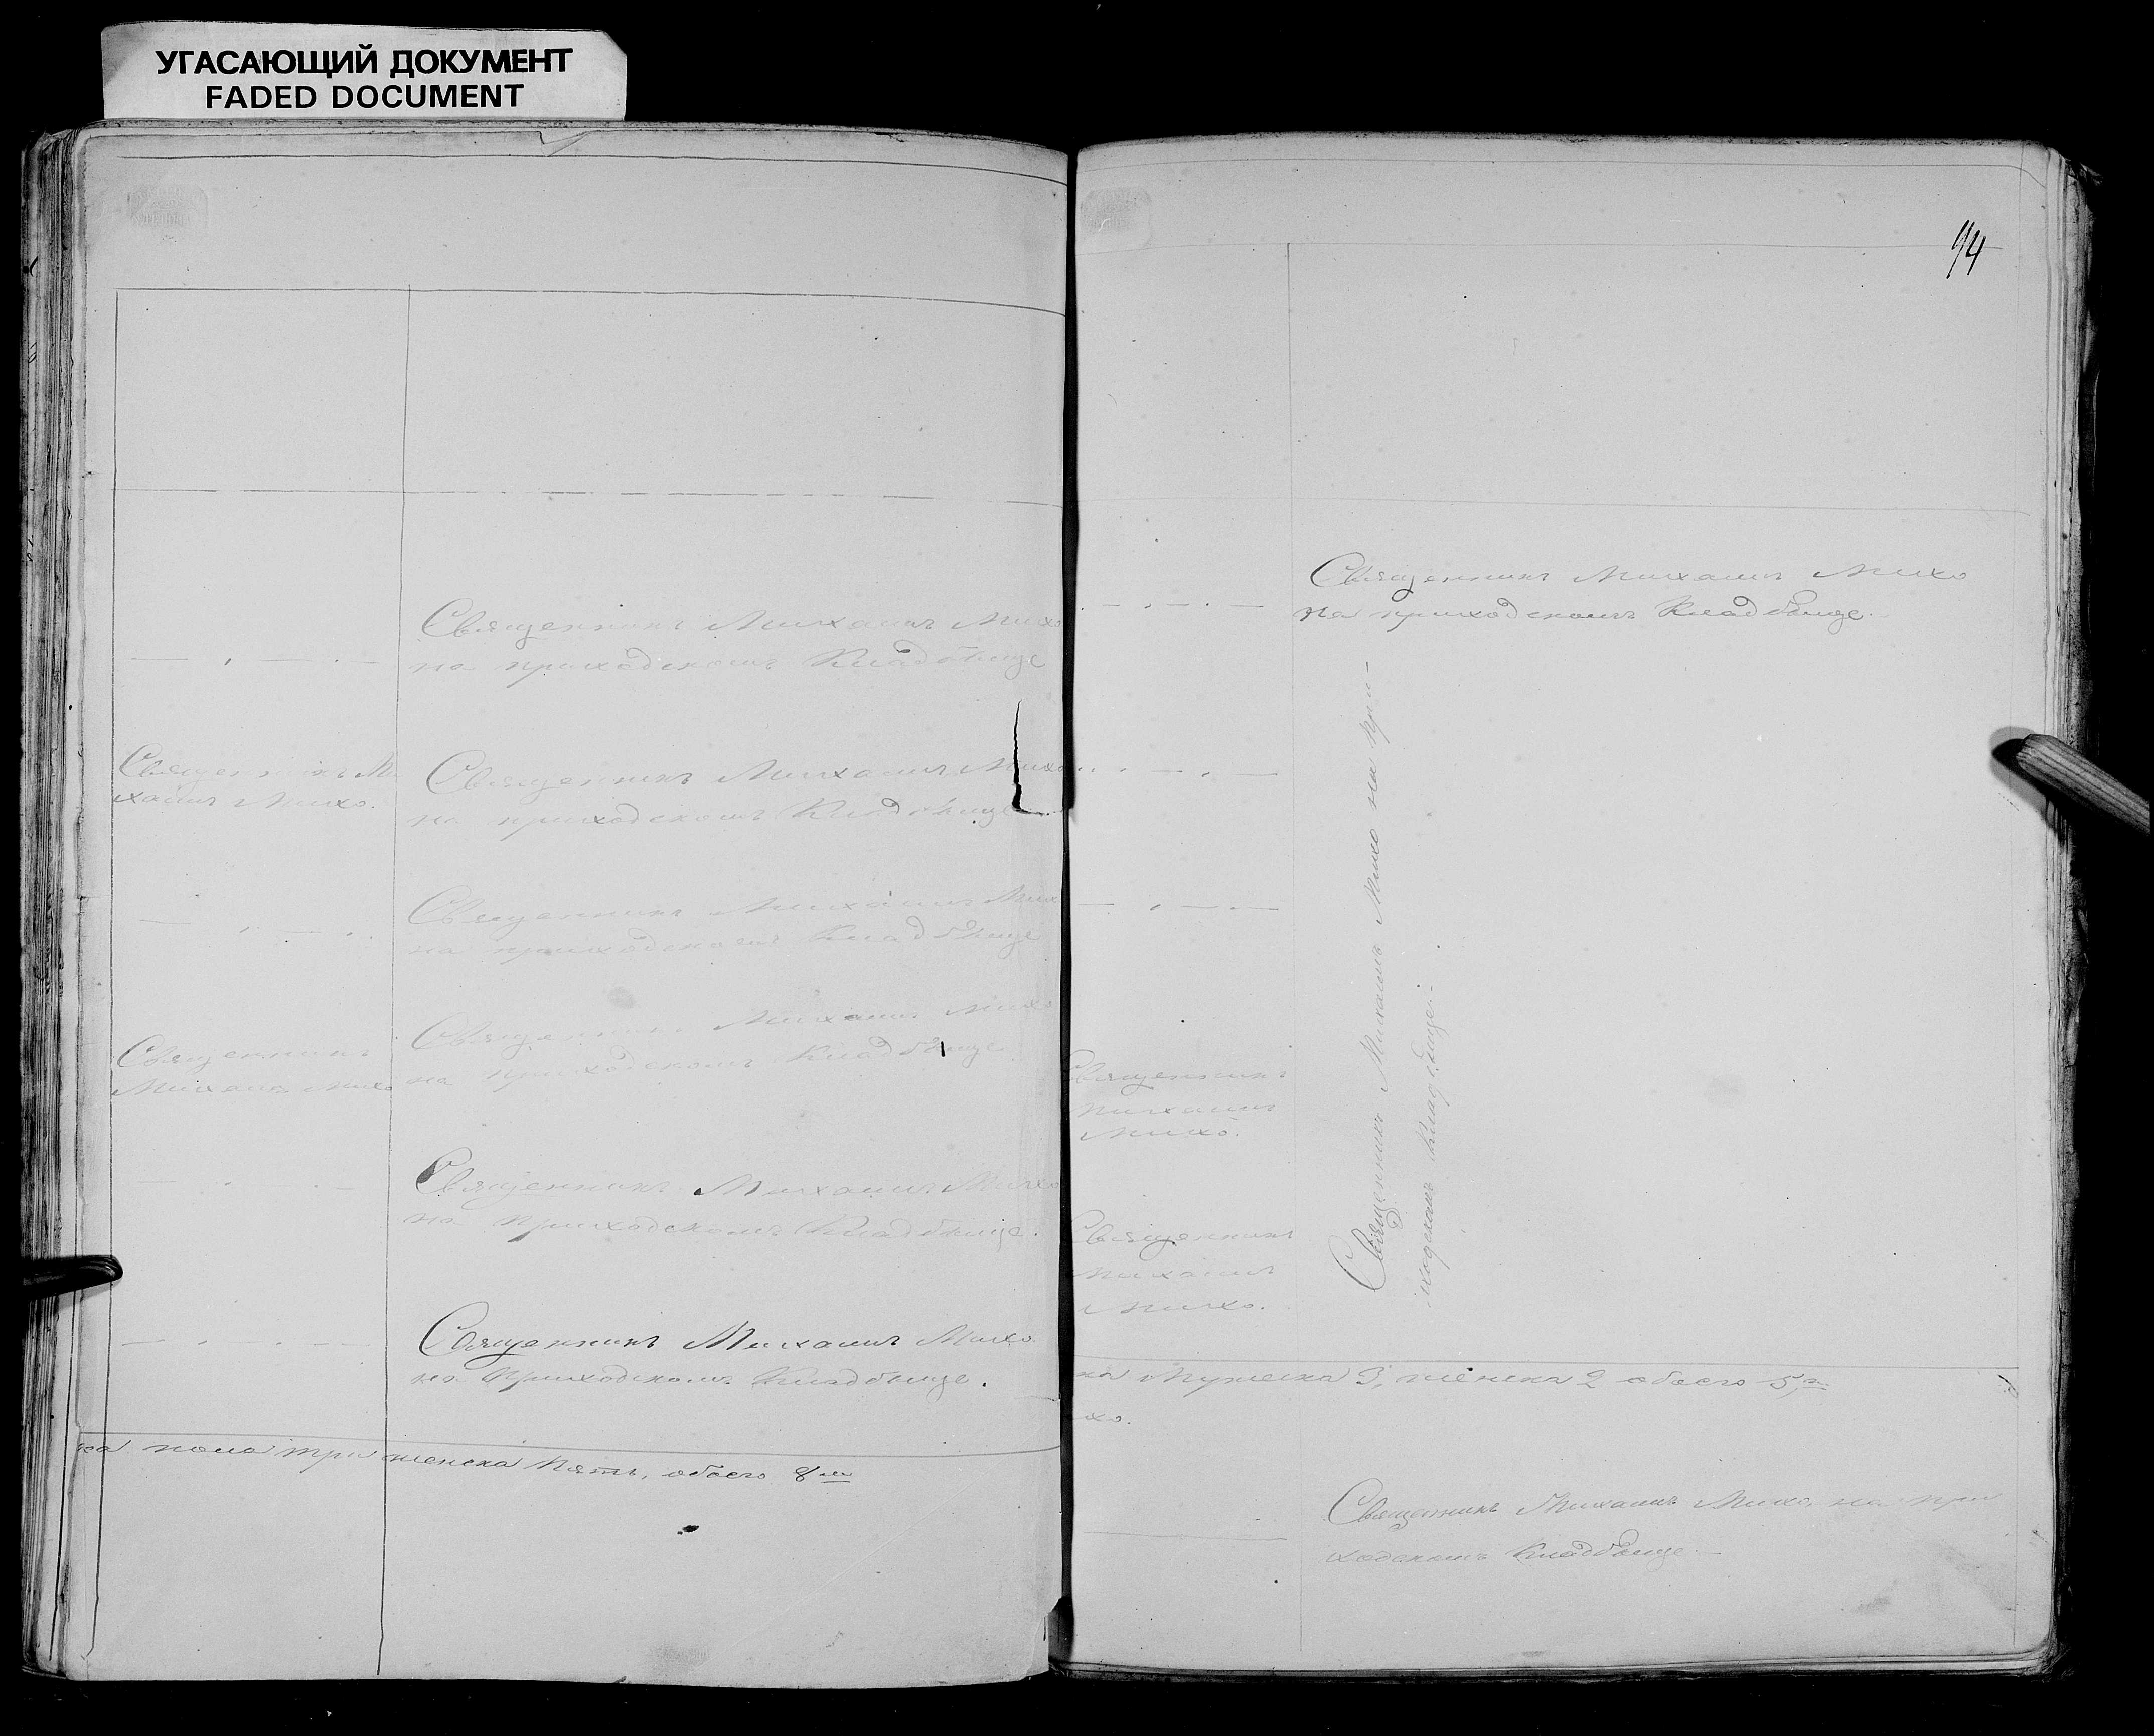 УГАСАЮЩИЙ ДОКУМЕНТ
FADED DOCUMENT
Священникъ Михаилъ Михо
на приходскомъ Кладбище
Священникъ Ми
хаилъ Михо.
Священникъ Михаилъ Михо
на приходскомъ Кладбище
Священникъ Михаилъ Михо
на приходскомъ Кладбище
Священникъ
Михаилъ Михо
Священникъ Михаилъ Михо
на приходскомъ Кладбище
Священникъ Михаилъ Михо
на приходскомъ Кладбище.
Священникъ Михаилъ Михо
на Приходскомъ Кладбище.
ка пола три женска пять, обоего 8м
94
Священникъ Михаилъ Михо
на приходскомъ Кладбище.
Священникъ Михаилъ Михо на при-
ходскомъ Кладбище.
Священникъ
Михаилъ
Михо.
Священникъ
Михаилъ
Михо.
ка Мужеска 3, женска 2 обоего 5,п.
хо.
Священникъ Михаилъ Михо, на при
ходскомъ Кладбище